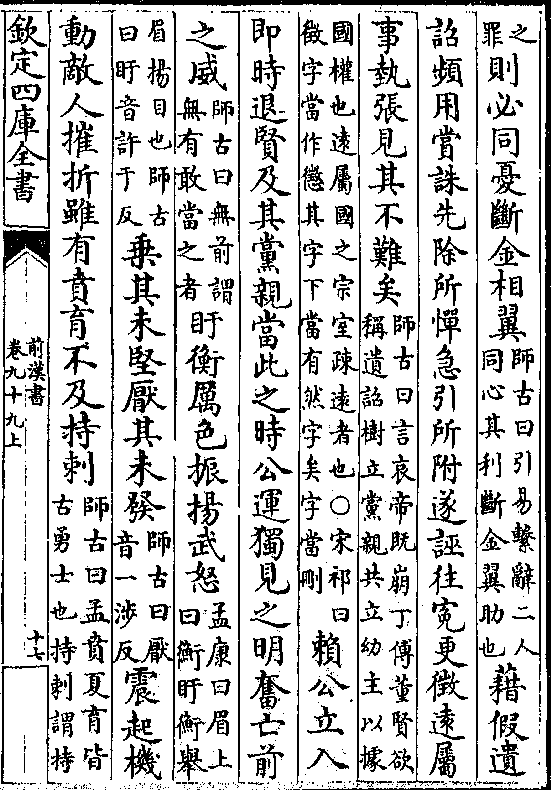 之罪則必同憂斷金相翼師古曰引易繫辭二人同心其利斷金翼助也藉假遺
詔頻用賞誅先除所憚急引所附遂誣往寃更徵遠屬
事執張見其不難矣師古曰言哀帝既崩丁傅董賢欲稱遺詔樹立黨親共立幼主以據
國權也遠屬國之宗室疎遠者也○宋祁曰徵字當作懲其字下當有然字矣字當刪賴公立入
即時退賢及其黨親當此之時公運獨見之明奮亡前
之威師古曰無前謂無有敢當之者盱衡厲色振揚武怒孟康曰眉上曰衡盱衡舉
眉揚目也師古曰盱音許于反乗其未堅厭其未發師古曰厭音一涉反震起機
動敵人摧折雖有賁育不及持刺師古曰孟賁夏育皆古勇士也持刺謂持
欽定四庫全書
前漢書
卷九十九上
十七